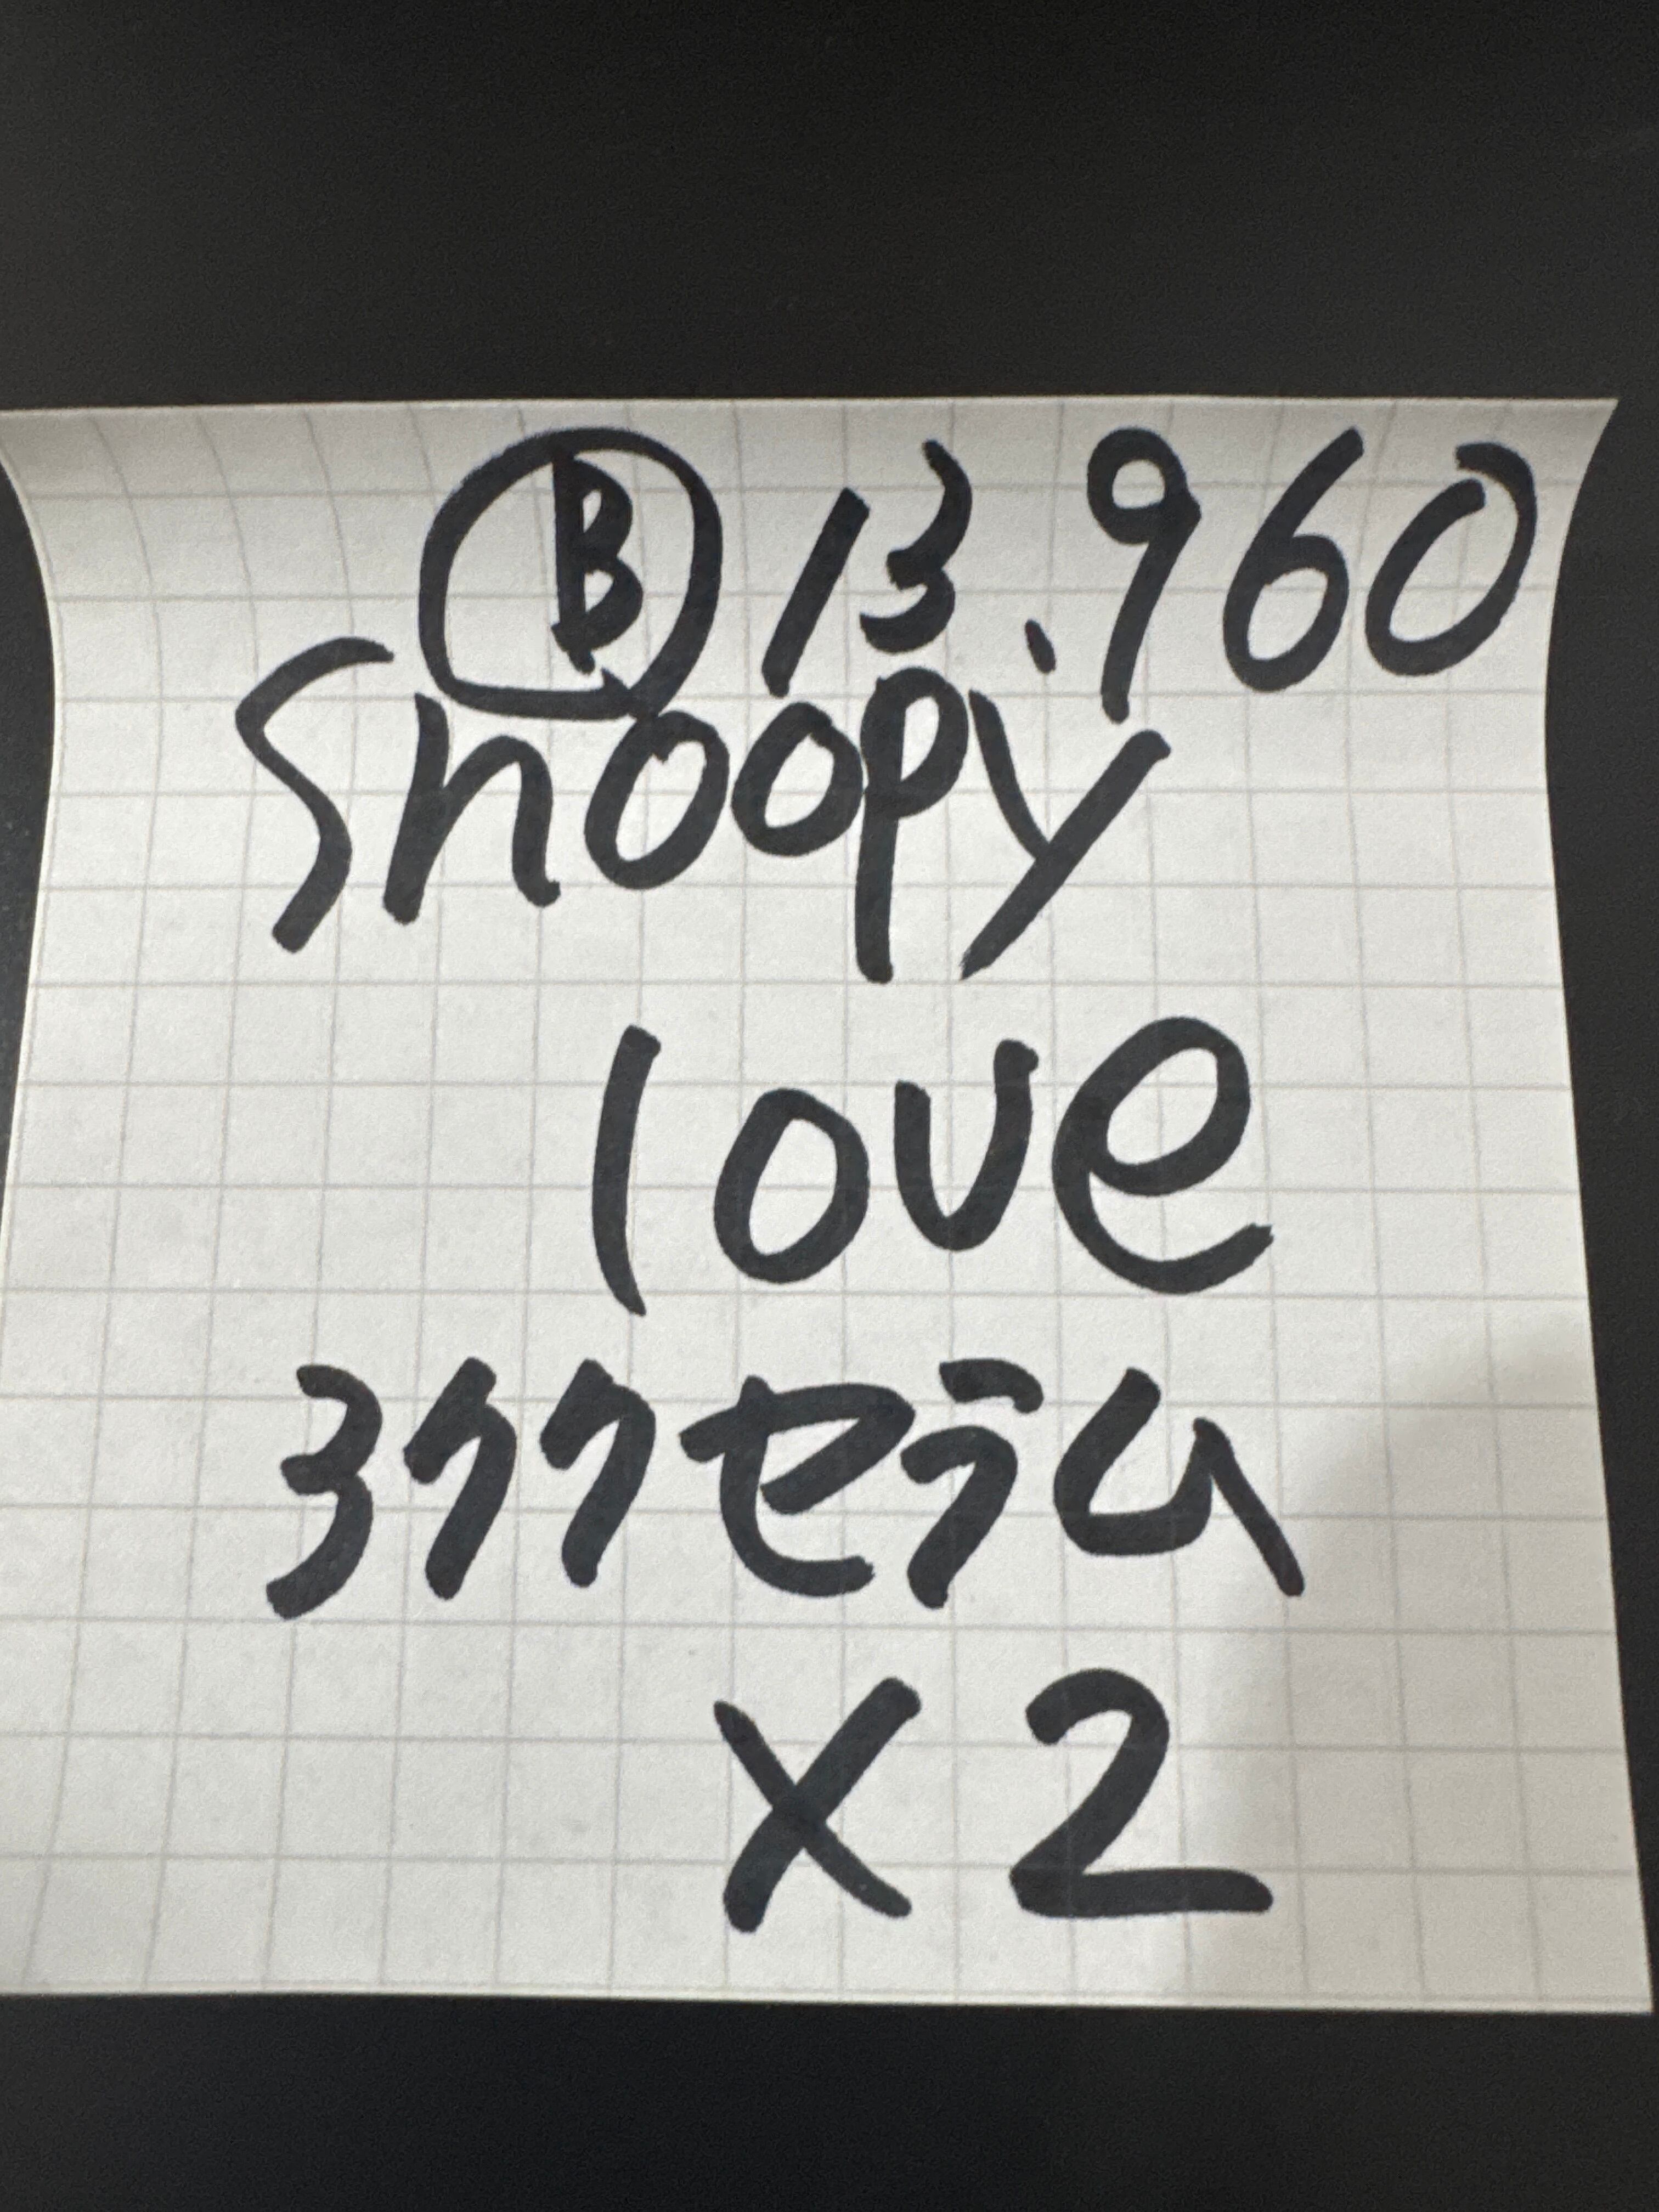 Ⓑ 13.960
Snoopy
love
3ククセラム
X2